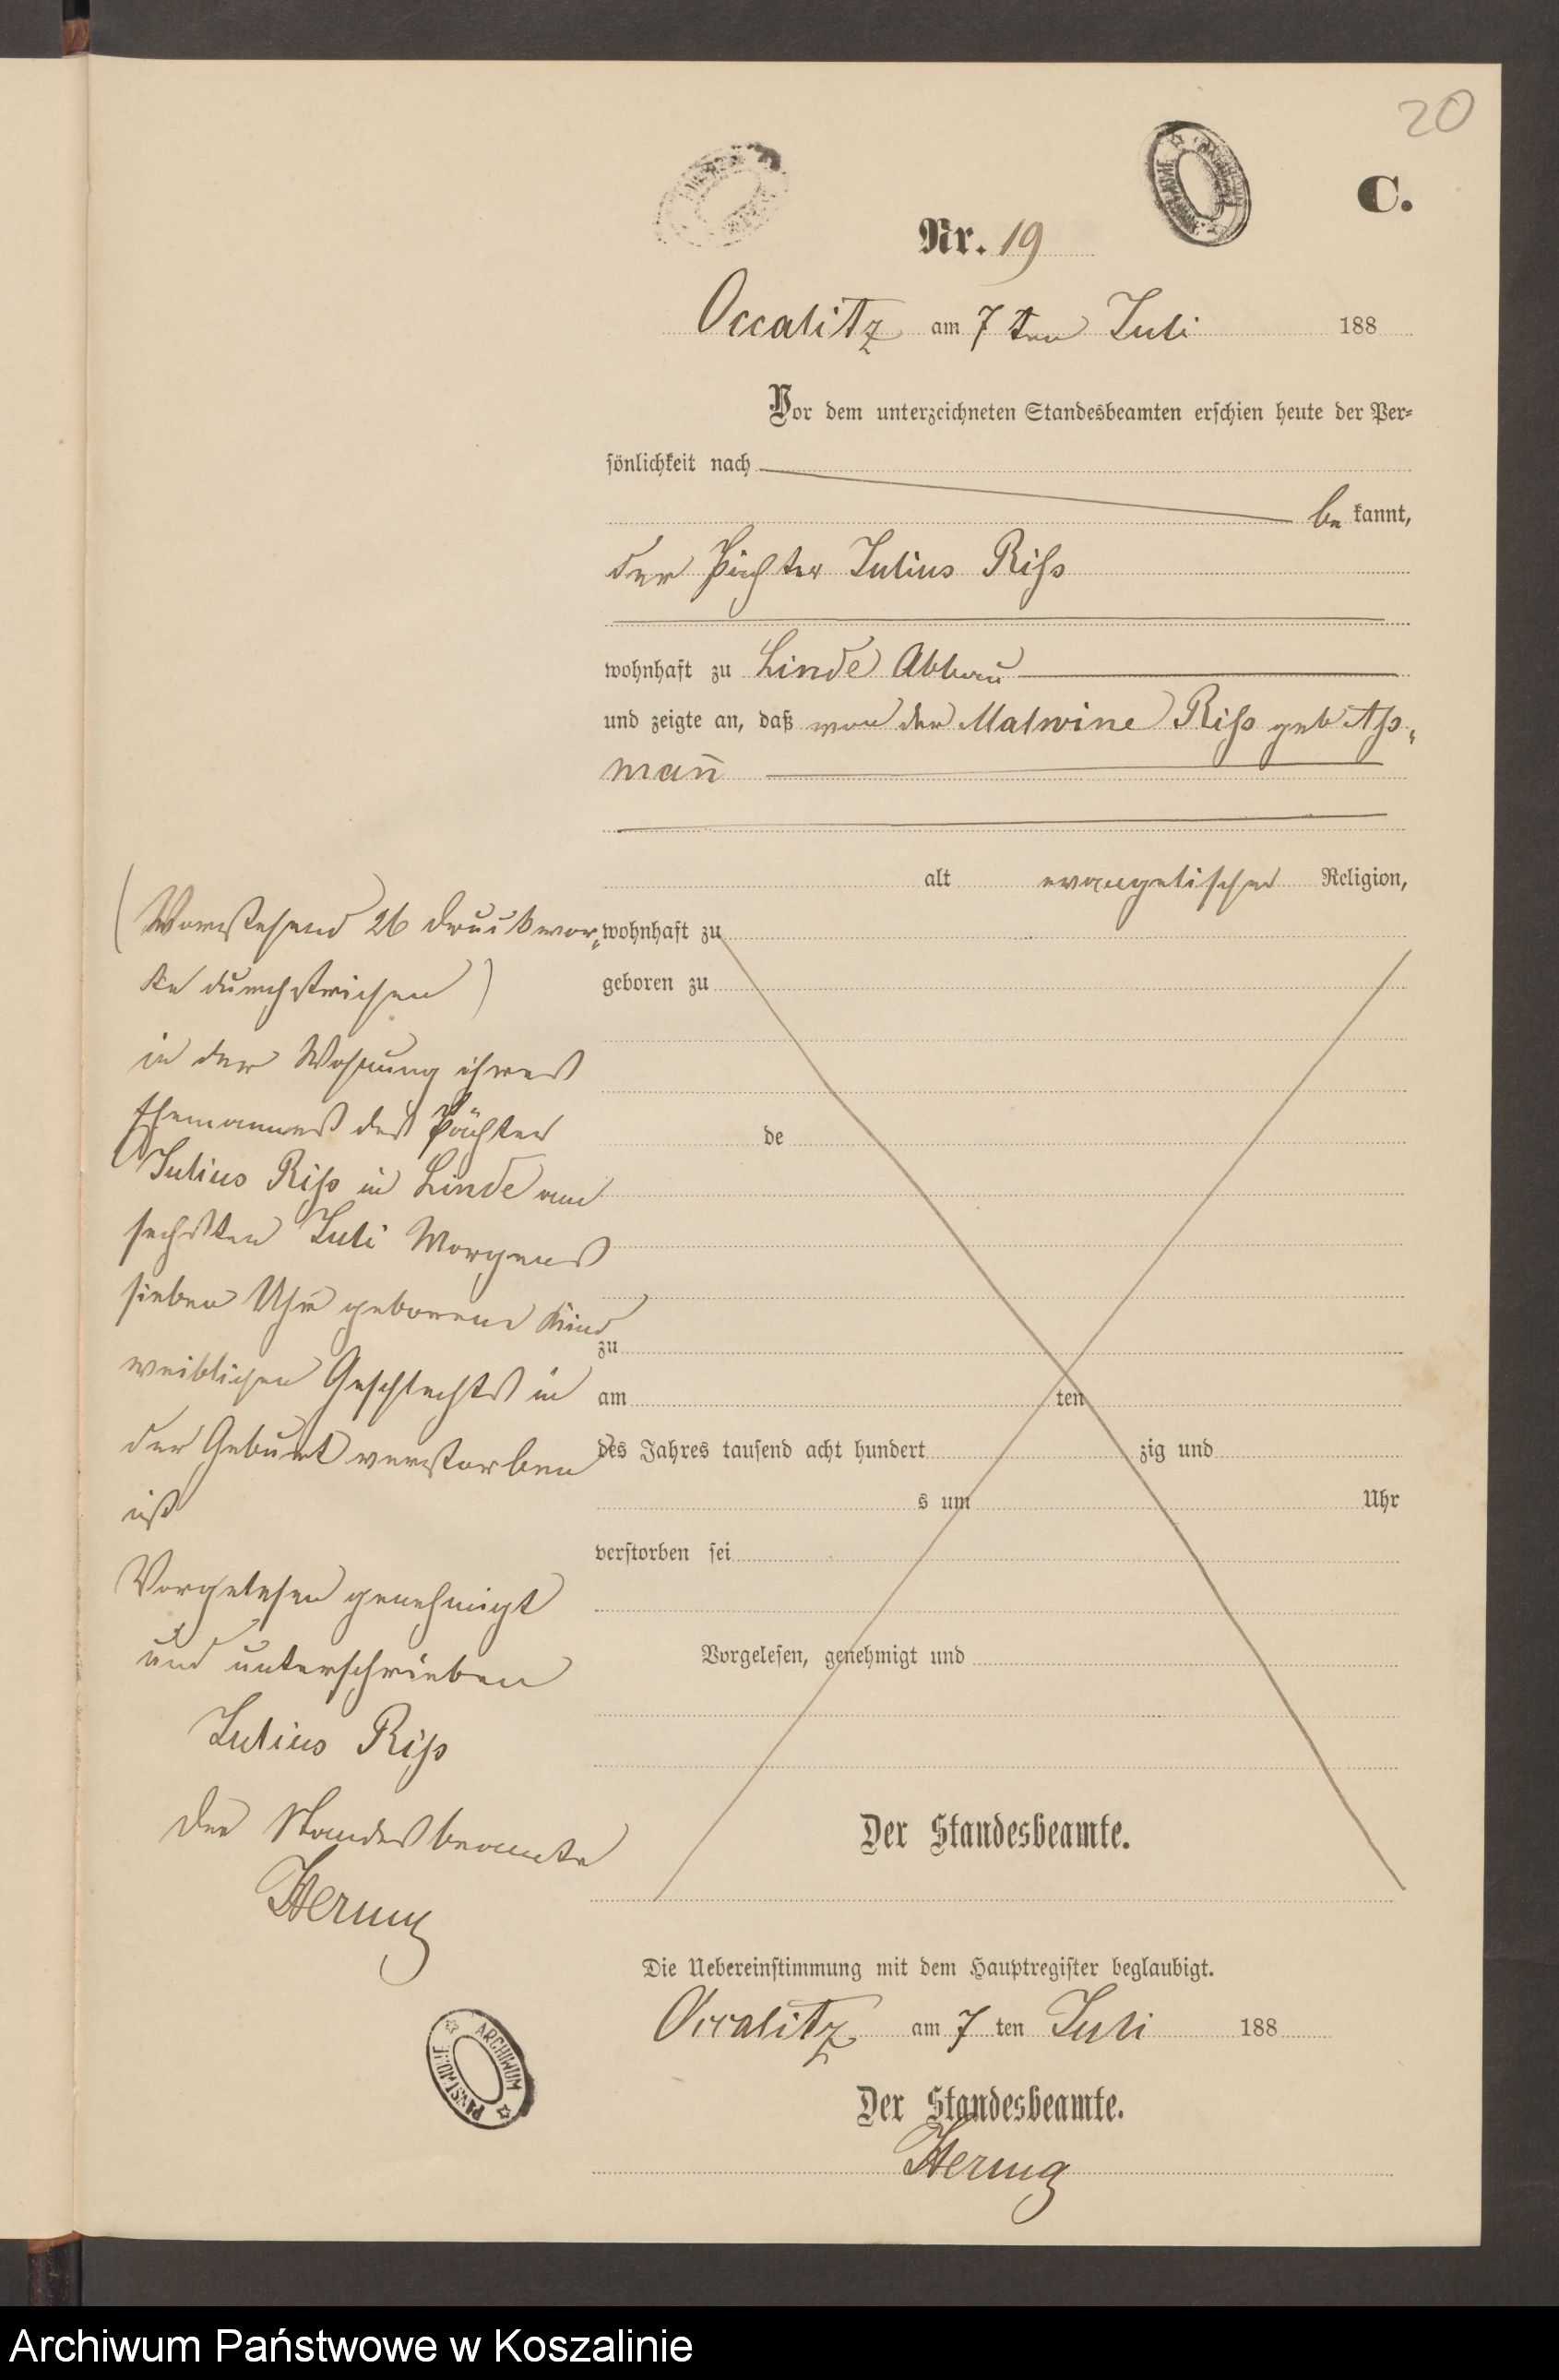 20
C.
Nr. 19
Occalitz am 7ten Juli 188
Vor dem unterzeichneten Standesbeamten erschien heute der Per-
sönlichkeit nach
be kannt,
der Pächter Julius Riß
wohnhaft zu Linde Abbau
und zeigte an, daß von der Malwine Riß geb Aß-
mañ
alt evangelischer Religion,
wohnhaft zu
geboren zu
de
zu
am ten
des Jahres tausend acht hundert zig und
s um Uhr
verstorben sei
Vorgelesen, genehmigt und
Der Standesbeamte.
(Vorstehend 26 Druckwor-
te durchstrichen)
in der Wohnung ihres
Ehemannes des Pächter
Julius Riß in Linde am
sechsten Juli Morgens
sieben Uhr geborene Kind
weiblichen Geschlechts in
der Geburt verstorben
ist
Vorgelesen genehmigt
und unterschrieben
Julius Riß
Der Standesbeamte
Hering
Die Uebereinstimmung mit dem Hauptregister beglaubigt.
Occalitz am 7 ten Juli 188
Der Standesbeamte.
Hering
ARCHIWUM PAŃSTWOWE
Archiwum Państwowe w Koszalinie